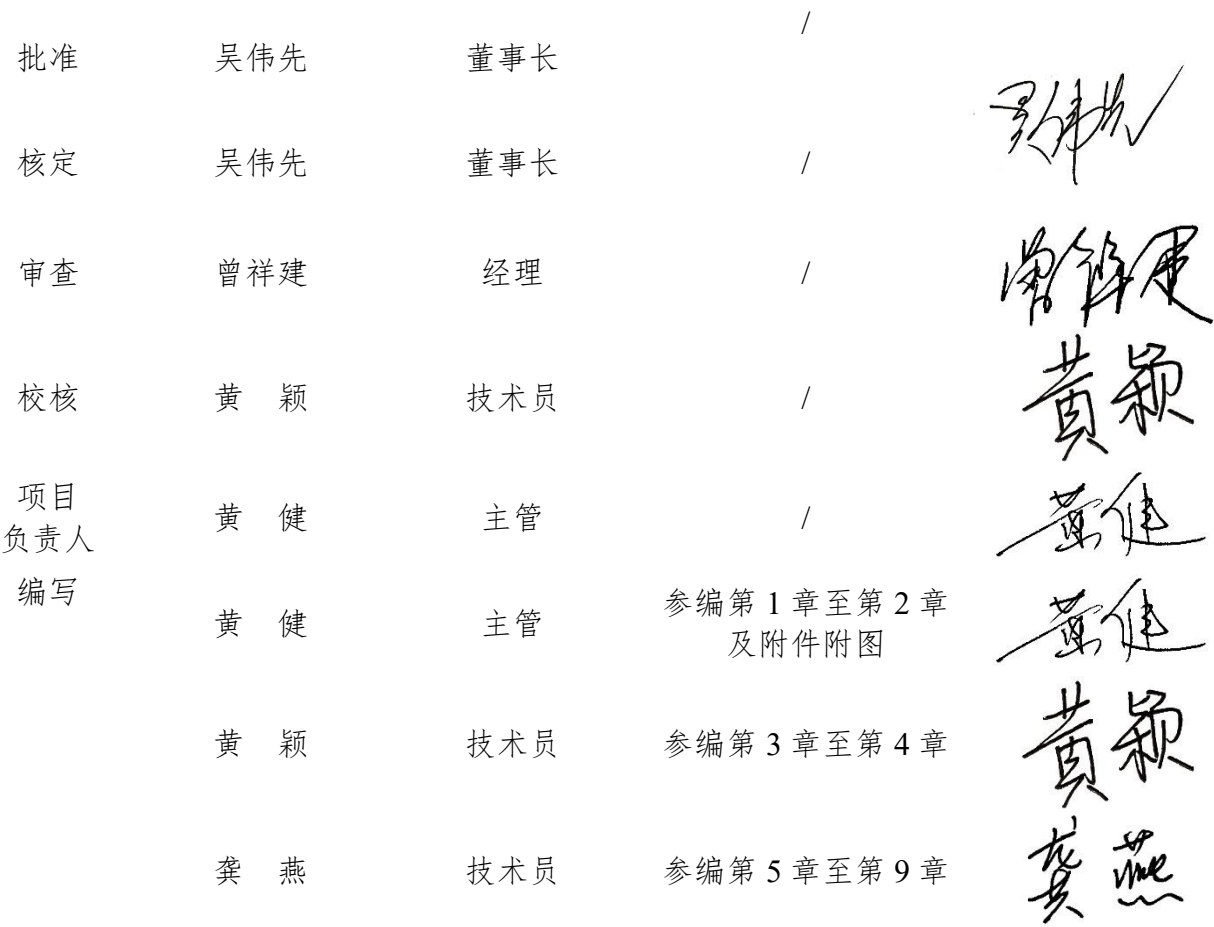 批准 吴伟先 董事长 /
吴伟先
核定 吴伟先 董事长 /
审查 曾祥建 经理 / 曾祥建
校核 黄 颖 技术员 / 黄颖
项目
负责人 黄 健 主管 / 黄健
编写
黄 健 主管 参编第 1 章至第 2 章
及附件附图 黄健
黄 颖 技术员 参编第 3 章至第 4 章 黄颖
龚 燕 技术员 参编第 5 章至第 9 章 龚燕